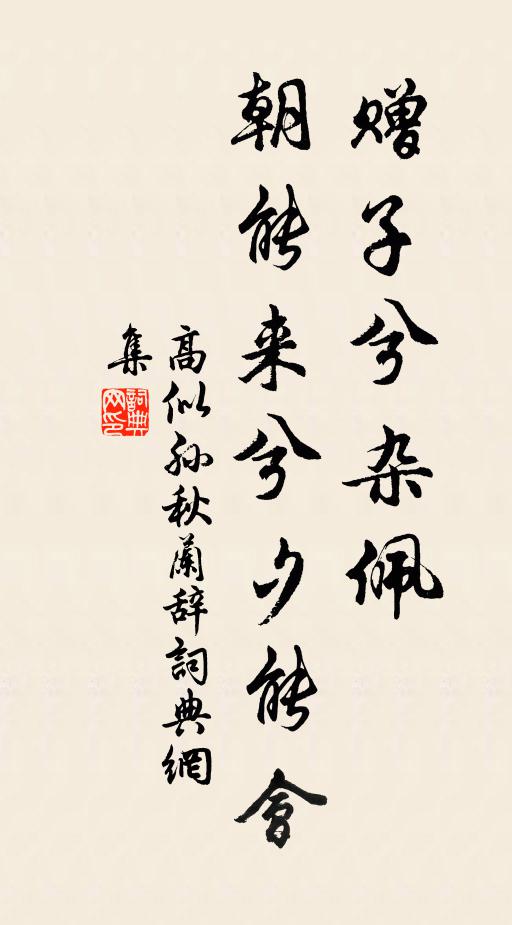 赠子兮杂佩
朝能来兮夕能會
高似孙秋蘭辞詞典網
集
詞典
网印